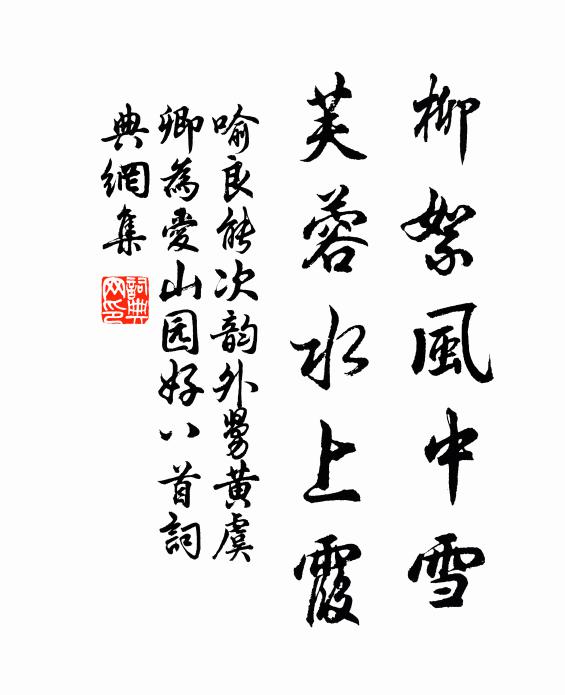 柳絮風中雪
芙蓉水上霞
喻良能次韵外舅黄虞
卿為愛山园好八首詞
典網集
詞典网印